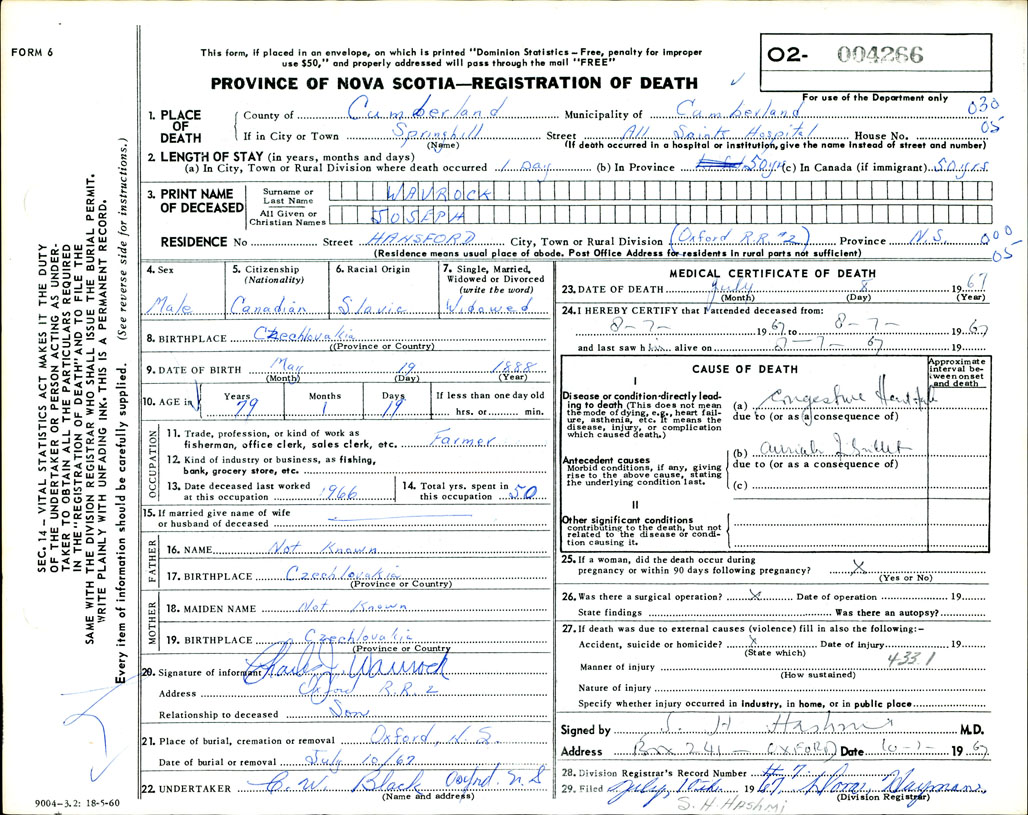 FORM 6
This form, if placed in an envelope, on which is printed "Dominion Statistics – Free, penalty for improper
use $50," and properly addressed will pass through the mail "FREE"
PROVINCE OF NOVA SCOTIA—REGISTRATION OF DEATH
02- 004266
For use of the Department only
030
05
1. PLACE OF DEATH
County of Cumberland Municipality of Cumberland
If in City or Town Springhill Street All Saints Hospital House No.
(Name) (If death occurred in a hospital or institution, give the name instead of street and number)
2. LENGTH OF STAY (in years, months and days)
(a) In City, Town or Rural Division where death occurred 1 Day (b) In Province 50 yrs (c) In Canada (if immigrant) 50 yrs.
3. PRINT NAME OF DECEASED
Surname or Last Name WAVROCK
All Given or Christian Names JOSEPH
RESIDENCE No Street HANSFORD City, Town or Rural Division (Oxford R.R. #2) Province N.S.
000
05
(Residence means usual place of abode. Post Office Address for residents in rural parts not sufficient)
4. Sex Male
5. Citizenship (Nationality) Canadian
6. Racial Origin Slavic
7. Single, Married, Widowed or Divorced (write the word) Widowed
8. BIRTHPLACE Czechlovakia
(Province or Country)
9. DATE OF BIRTH May 19 1888
(Month) (Day) (Year)
10. AGE in Years 79 Months 1 Days 19 If less than one day old hrs. or min.
OCCUPATION
11. Trade, profession, or kind of work as
fisherman, office clerk, sales clerk, etc. Farmer
12. Kind of industry or business, as fishing,
bank, grocery store, etc.
13. Date deceased last worked
at this occupation 1966
14. Total yrs. spent in
this occupation 50
15. If married give name of wife
or husband of deceased
FATHER
16. NAME Not Known
17. BIRTHPLACE Czechlovakia
(Province or Country)
MOTHER
18. MAIDEN NAME Not Known
19. BIRTHPLACE Czechlovakia
(Province or Country)
20. Signature of informant Charles J. Wavrock
Address Oxford R.R. 2
Relationship to deceased Son
21. Place of burial, cremation or removal Oxford, N.S.
Date of burial or removal July 10/67
22. UNDERTAKER C. W. Black Oxford N.S
(Name and address)
MEDICAL CERTIFICATE OF DEATH
23. DATE OF DEATH July 8 1967
(Month) (Day) (Year)
24. I HEREBY CERTIFY that I attended deceased from:
8-7- 1967 to 8-7- 1967
and last saw him alive on 8-7-67 19
CAUSE OF DEATH
Approximate interval between onset and death
I
Disease or condition directly leading
to death (This does not mean
the mode of dying, e.g., heart failure,
asthenia, etc. It means the
disease, injury, or complication
which caused death.)
(a) Congestive Heart
due to (or as a consequence of)
Antecedent causes
Morbid conditions, if any, giving
rise to the above cause, stating
the underlying condition last.
(b)
due to (or as a consequence of)
(c)
II
Other significant conditions
contributing to the death, but not
related to the disease or condition
causing it.
25. If a woman, did the death occur during
pregnancy or within 90 days following pregnancy? X
(Yes or No)
26. Was there a surgical operation? X Date of operation 19
State findings Was there an autopsy?
27. If death was due to external causes (violence) fill in also the following:–
Accident, suicide or homicide? X Date of injury 19
(State which)
433.1
Manner of injury
(How sustained)
Nature of injury
Specify whether injury occurred in industry, in home, or in public place
Signed by S. H Hashmi M.D.
Address Box 241 – OXFORD Date 10-7- 1967
28. Division Registrar's Record Number #7
29. Filed July, 10th 1967 Dora Hayman
(Division Registrar)
S.H. HASHMI
SEC. 14 – VITAL STATISTICS ACT MAKES IT THE DUTY
OF THE UNDERTAKER OR PERSON ACTING AS UNDERTAKER
TO OBTAIN ALL THE PARTICULARS REQUIRED
IN THE "REGISTRATION OF DEATH" AND TO FILE THE
SAME WITH THE DIVISION REGISTRAR WHO SHALL ISSUE THE BURIAL PERMIT.
WRITE PLAINLY WITH UNFADING INK. THIS IS A PERMANENT RECORD.
Every item of information should be carefully supplied. (See reverse side for instructions.)
9004-3.2: 18-5-60